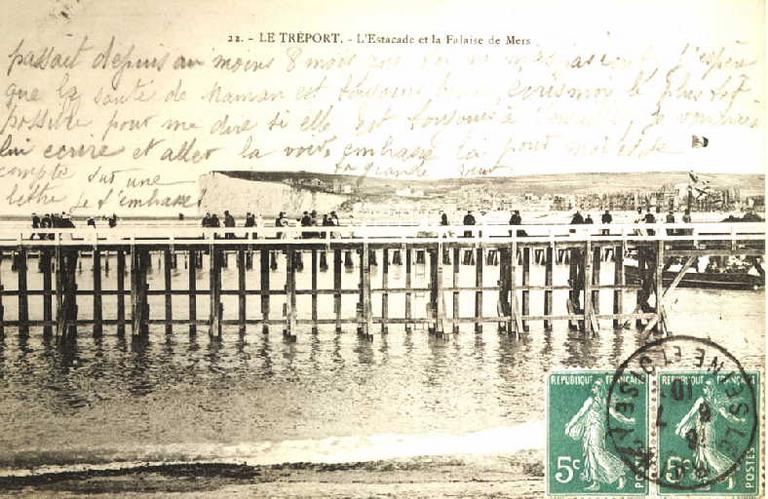 22. - LE TRÉPORT. - L'Estacade et la Falaise de Mers
passait depuis au moins 8 mois
que la santé de Maman est toujours bonne, écris moi le plus tôt
possible pour me dire si elle est toujours à je voudrais
lui écrire et aller la voir, embrasse la pour moi
compte sur une ta grande
lettre je t'embrasse
RÉPUBLIQUE FRANÇAISE RÉPUBLIQUE FRANÇAISE
SEINE ET OISE
5c 5c
POSTES POSTES